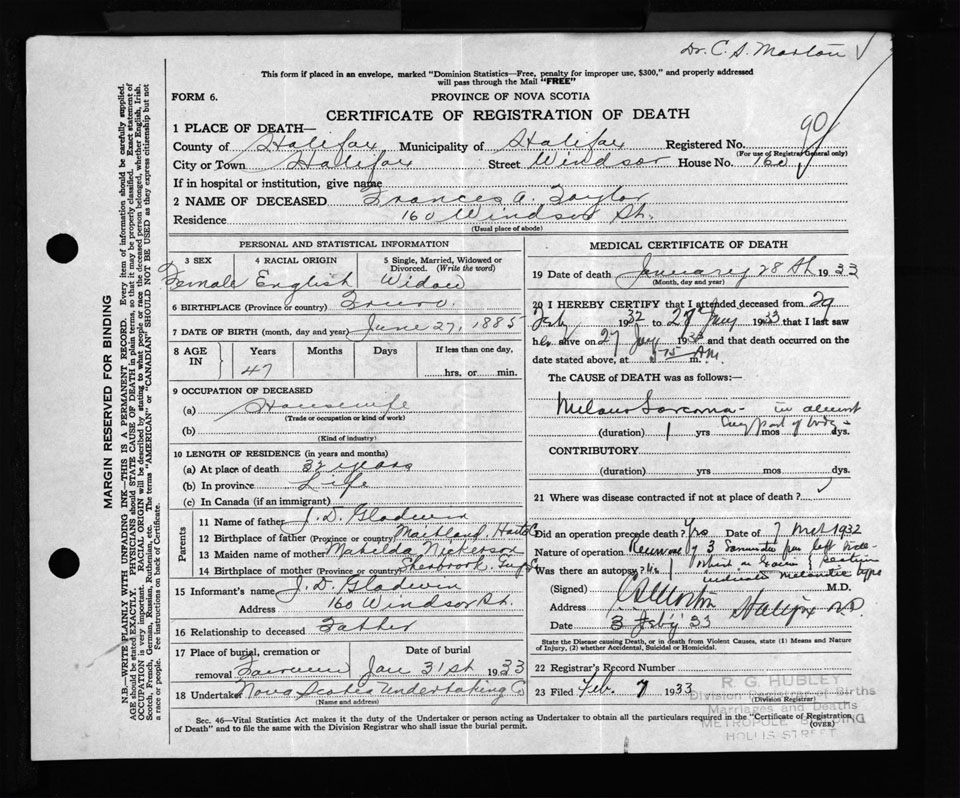 Dr. C. S. Morton
This form if placed in an envelope, marked "Dominion Statistics—Free, penalty for improper use, $300," and properly addressed
will pass through the Mail "FREE"
FORM 6.
PROVINCE OF NOVA SCOTIA
90
CERTIFICATE OF REGISTRATION OF DEATH
1 PLACE OF DEATH—
County of Halifax Municipality of Halifax Registered No.
(For use of Registrar General only)
City or Town Halifax Street Windsor House No. 160
If in hospital or institution, give name
2 NAME OF DECEASED Frances A. Taylor
Residence 160 Windsor St.
(Usual place of abode)
PERSONAL AND STATISTICAL INFORMATION
3 SEX 4 RACIAL ORIGIN 5 Single, Married, Widowed or
Divorced. (Write the word)
Female English Widow
6 BIRTHPLACE (Province or country) Truro
7 DATE OF BIRTH (month, day and year) June 27, 1885
8 AGE IN Years Months Days If less than one day,
47 hrs. or min.
9 OCCUPATION OF DECEASED
(a) Housewife
(Trade or occupation or kind of work)
(b)
(Kind of industry)
10 LENGTH OF RESIDENCE (in years and months)
(a) At place of death 32 years
(b) In province Life
(c) In Canada (if an immigrant)
Parents
11 Name of father J. D. Gladwin
12 Birthplace of father (Province or country) Maitland, Hants Co
13 Maiden name of mother Matilda Nickerson
14 Birthplace of mother (Province or country) Sherbrook
15 Informant's name J. D. Gladwin
Address 160 Windsor St.
16 Relationship to deceased Father
17 Place of burial, cremation or Date of burial
removal Jan 31st 1933
18 Undertaker Nova Scotia Undertaking Co
(Name and address)
MEDICAL CERTIFICATE OF DEATH
19 Date of death January 28th 1933
(Month, day and year)
20 I HEREBY CERTIFY that I attended deceased from 29
Feby 1932 to 28th Jany 1933 that I last saw
her alive on 27 Jany 1933 and that death occurred on the
date stated above, at AM m.
The CAUSE of DEATH was as follows:—
Melano Sarcoma - in almost
every part of body
(duration) 1 yrs mos dys.
CONTRIBUTORY
(duration) yrs mos dys.
21 Where was disease contracted if not at place of death?
Did an operation precede death? Yes Date of 7 Mch 1932
Nature of operation Removal of 3
Was there an autopsy? No
indicated melanotic type
(Signed) C S Morton M.D.
Address Halifax N.S.
Date 3 Feby '33
State the Disease causing Death, or in death from Violent Causes, state (1) Means and Nature
of Injury, (2) whether Accidental, Suicidal or Homicidal.
22 Registrar's Record Number
23 Filed Feb. 7 1933
(Division Registrar)
R G. HUBLEY
Division Registrar of Births
Marriages and Deaths
METROPOLE BUILDING
HOLLIS STREET
Sec. 46—Vital Statistics Act makes it the duty of the Undertaker or person acting as Undertaker to obtain all the particulars required in the "Certificate of Registration
of Death" and to file the same with the Division Registrar who shall issue the burial permit.
(OVER)
MARGIN RESERVED FOR BINDING
N.B.—WRITE PLAINLY WITH UNFADING INK—THIS IS A PERMANENT RECORD. Every item of information should be carefully supplied.
AGE should be stated EXACTLY. PHYSICIANS should STATE CAUSE OF DEATH in plain terms, so that it may be properly classified. Exact statement of
OCCUPATION is very important. RACIAL ORIGIN will be described by stating to what people or race the deceased person belonged, whether English, Irish,
Scotch, French, German, Russian, Ruthenian, etc. The terms "AMERICAN" or "CANADIAN" SHOULD NOT BE USED as they express citizenship but not
a race or people. Fee instructions on back of Certificate.